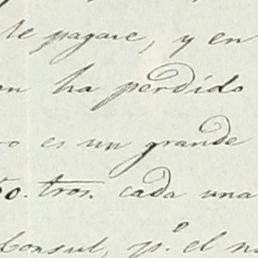 le pagare, y en
ha perdido
es un grande
50. tros. cada una
Consul, p.º el